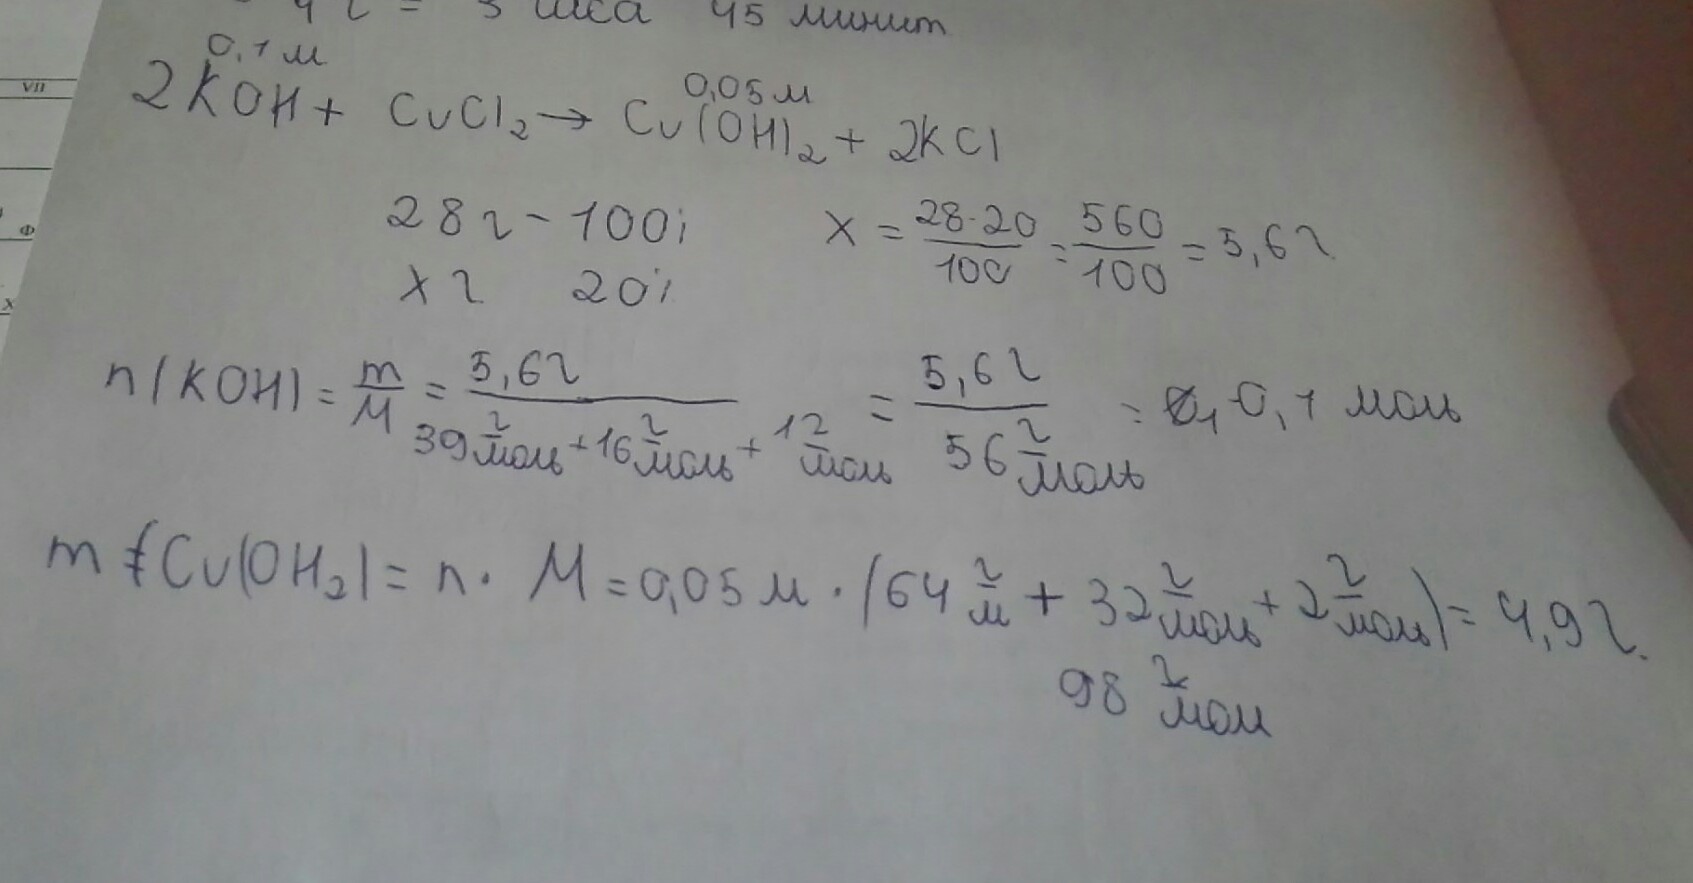 4 2 = 3 часа 45 минит
0,1 м
0,05 м
2KOH + CuCl₂ → Cu(OH)₂ + 2KCl
VII
28 г - 100% x = 28·20/100 = 560/100 = 5,6 г
Ф
x г 20%
x
n(KOH) = m/M = 5,6 г/(39 г/моль + 16 г/моль + 1 г/моль) = 5,6 г/56 г/моль = 0,1 моль
m (Cu(OH₂) = n · M = 0,05 м · (64 г/м + 32 г/моль + 2 г/моль) = 4,9 г.
98 г/мол